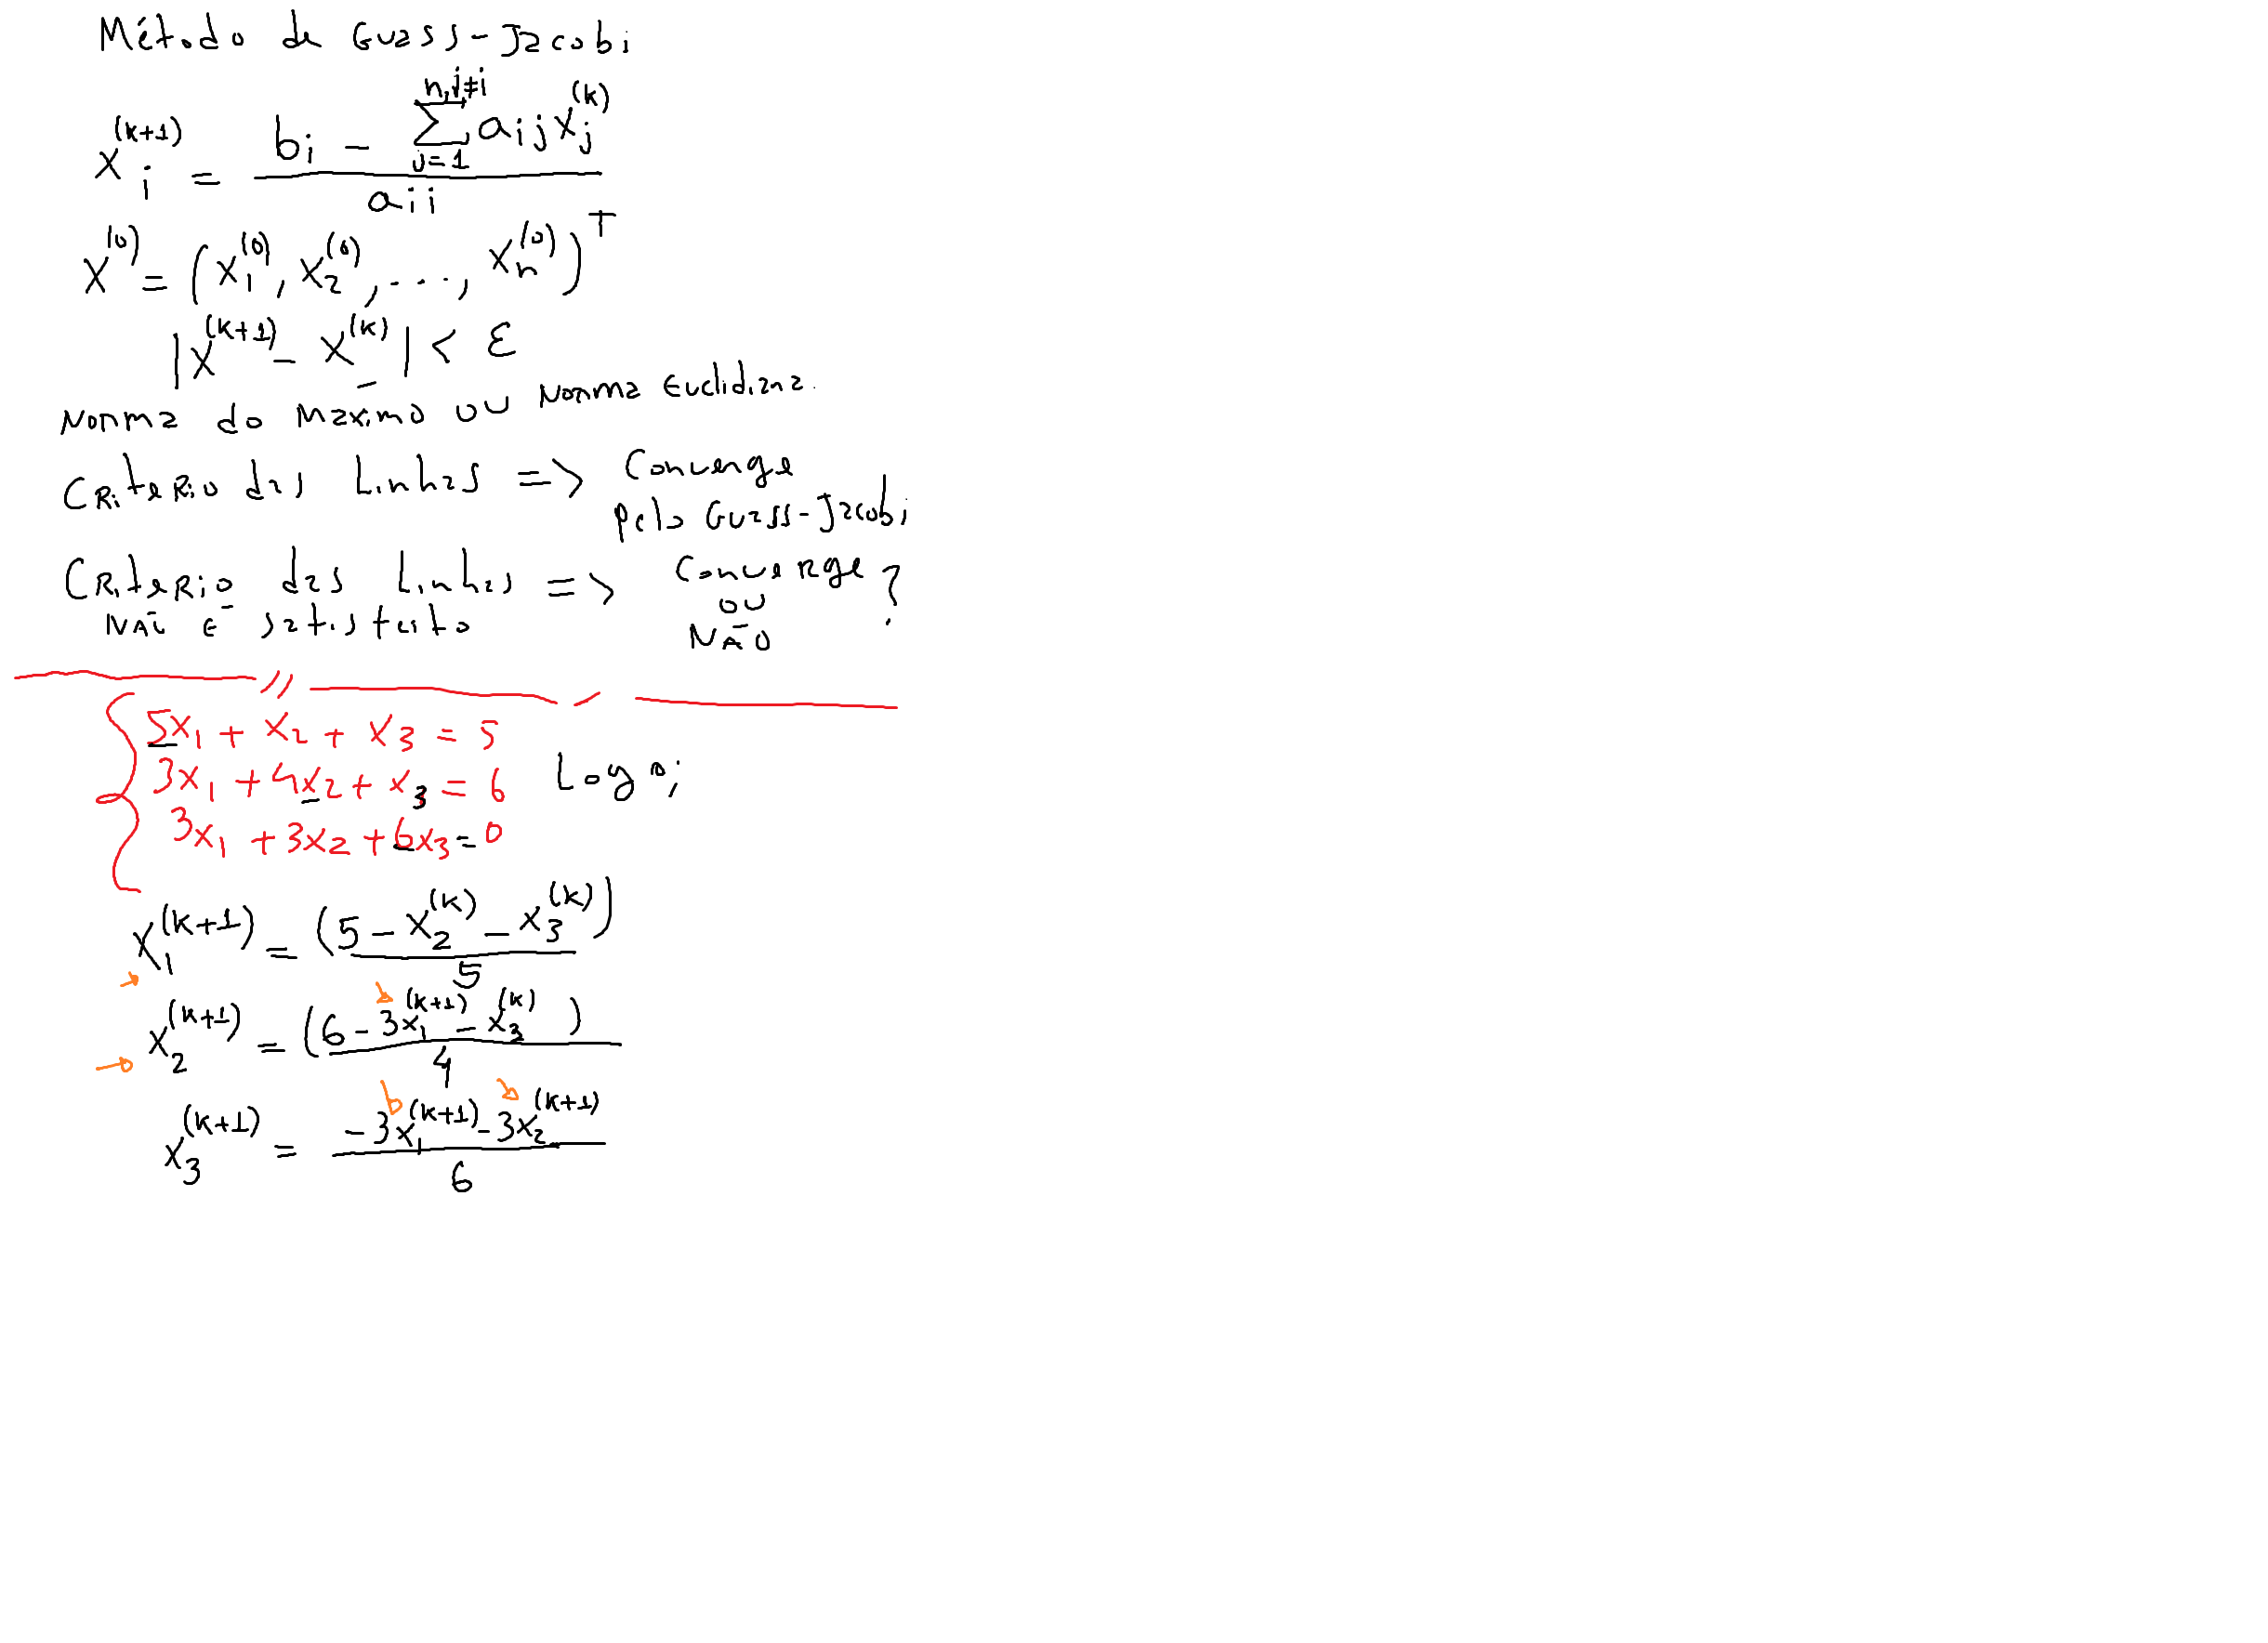 Método de Guass-Jacobi
x_i^(k+1) = (b_i - ∑_{j=1}^{n, j≠i} a_ij x_j^(k)) / a_ii
x^(0) = (x_1^(0), x_2^(0), ..., x_n^(0))^T
|x^(k+1) - x^(k)| < ε
Norma do maximo ou Norma Euclidiana.
Criterio das Linhas => Converge
pelo Guass-Jacobi
Criterio das Linhas => Converge
NÃO É satisfeito ou NÃO ?
5x_1 + x_2 + x_3 = 5
3x_1 + 4x_2 + x_3 = 6 Logo;
3x_1 + 3x_2 + 6x_3 = 0
x_1^(k+1) = (5 - x_2^(k) - x_3^(k)) / 5
x_2^(k+1) = (6 - 3x_1^(k+1) - x_3^(k)) / 4
x_3^(k+1) = (-3x_1^(k+1) - 3x_2^(k+1)) / 6